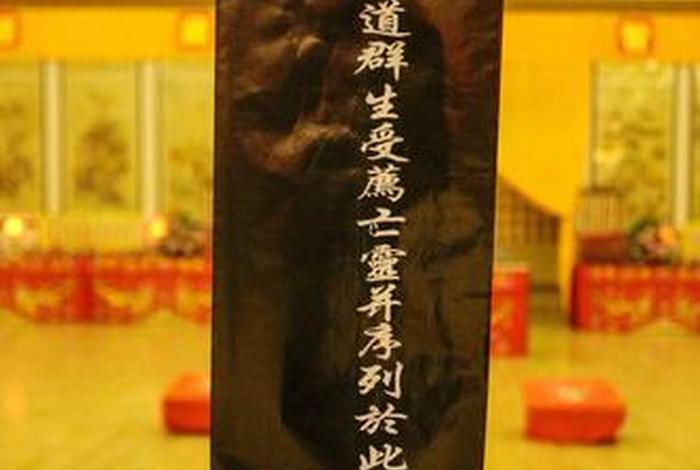 道群生受薦亡靈并序列於此